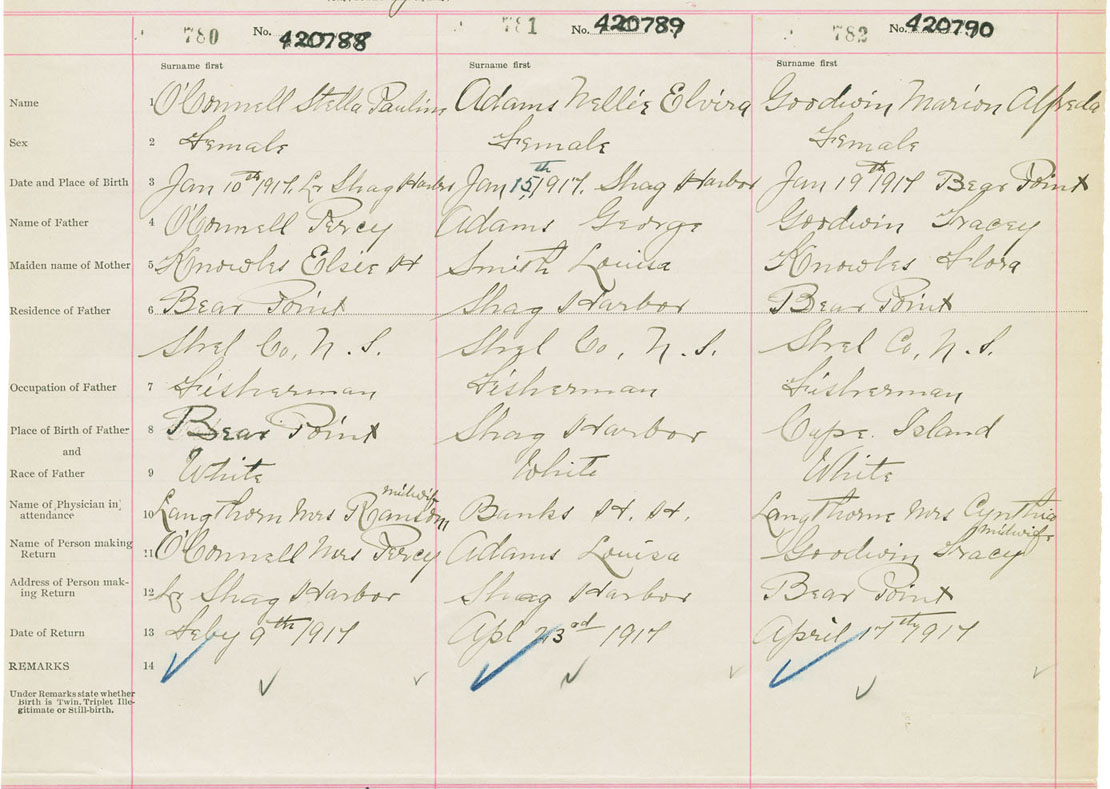 780 No. 420788 781 No. 420789 782 No. 420790
Surname first Surname first Surname first
Name 1 O'Connell Stella Pauline Adams Nellie Elvira Goodwin Marion Alfreda
Sex 2 Female Female Female
Date and Place of Birth 3 Jan 10th 1917. Lr Shag Harbor Jan 15th, 1917. Shag Harbor Jan 19th 1917 Bear Point
Name of Father 4 O'Connell Percy Adams George Goodwin Tracey
Maiden name of Mother 5 Knowles Elsie H Smith Louisa Knowles Flora
Residence of Father 6 Bear Point Shag Harbor Bear Point
Shel Co, N. S. Shel Co, N. S. Shel Co, N. S.
Occupation of Father 7 Fisherman Fisherman Fisherman
Place of Birth of Father 8 Bear Point Shag Harbor Cape. Island
and
Race of Father 9 White White White
midwife
Name of Physician in attendance 10 Langthorn Mrs Ransom Banks H. H. Langthorne Mrs Cynthia
midwife
Name of Person making Return 11 O'Connell Mrs Percy Adams Louisa Goodwin Tracey
Address of Person mak-
ing Return 12 Lr Shag Harbor Shag Harbor Bear Point
Date of Return 13 Feby 9th 1917 Apl 23rd 1917 April 17th 1917
REMARKS 14
Under Remarks state whether
Birth is Twin, Triplet Ille-
gitimate or Still-birth.